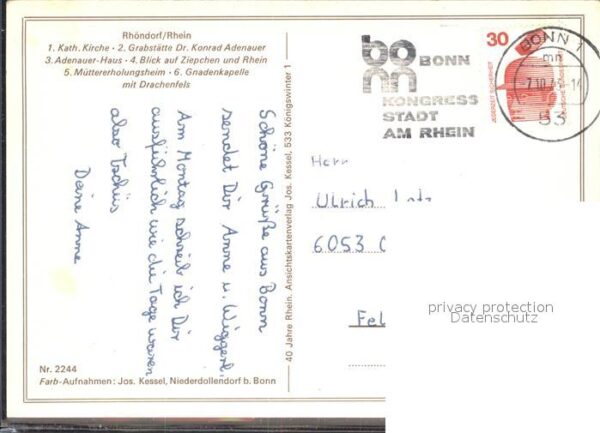 Rhöndorf/Rhein
1. Kath. Kirche · 2. Grabstätte Dr. Konrad Adenauer
3. Adenauer-Haus · 4. Blick auf Ziepchen und Rhein
5. Müttererholungsheim · 6. Gnadenkapelle
mit Drachenfels
Schöne Grüße aus Bonn
sendet Dir Anne u. Wiggerl.
Am Montag schreib ich Dir
ausführlich wie die Tage waren
also Tschüs
Deine Anne
Nr. 2244
Farb-Aufnahmen: Jos. Kessel, Niederdollendorf b. Bonn
40 Jahre Rhein. Ansichtskartenverlag Jos. Kessel, 533 Königswinter 1
bonn
BONN
KONGRESS
STADT
AM RHEIN
30
JEDERZEIT SICHERHEIT
DEUTSCHE BUNDESPOST
BONN 1
mn
53
Herr
Ulrich
6053
Fel
privacy protection
Datenschutz